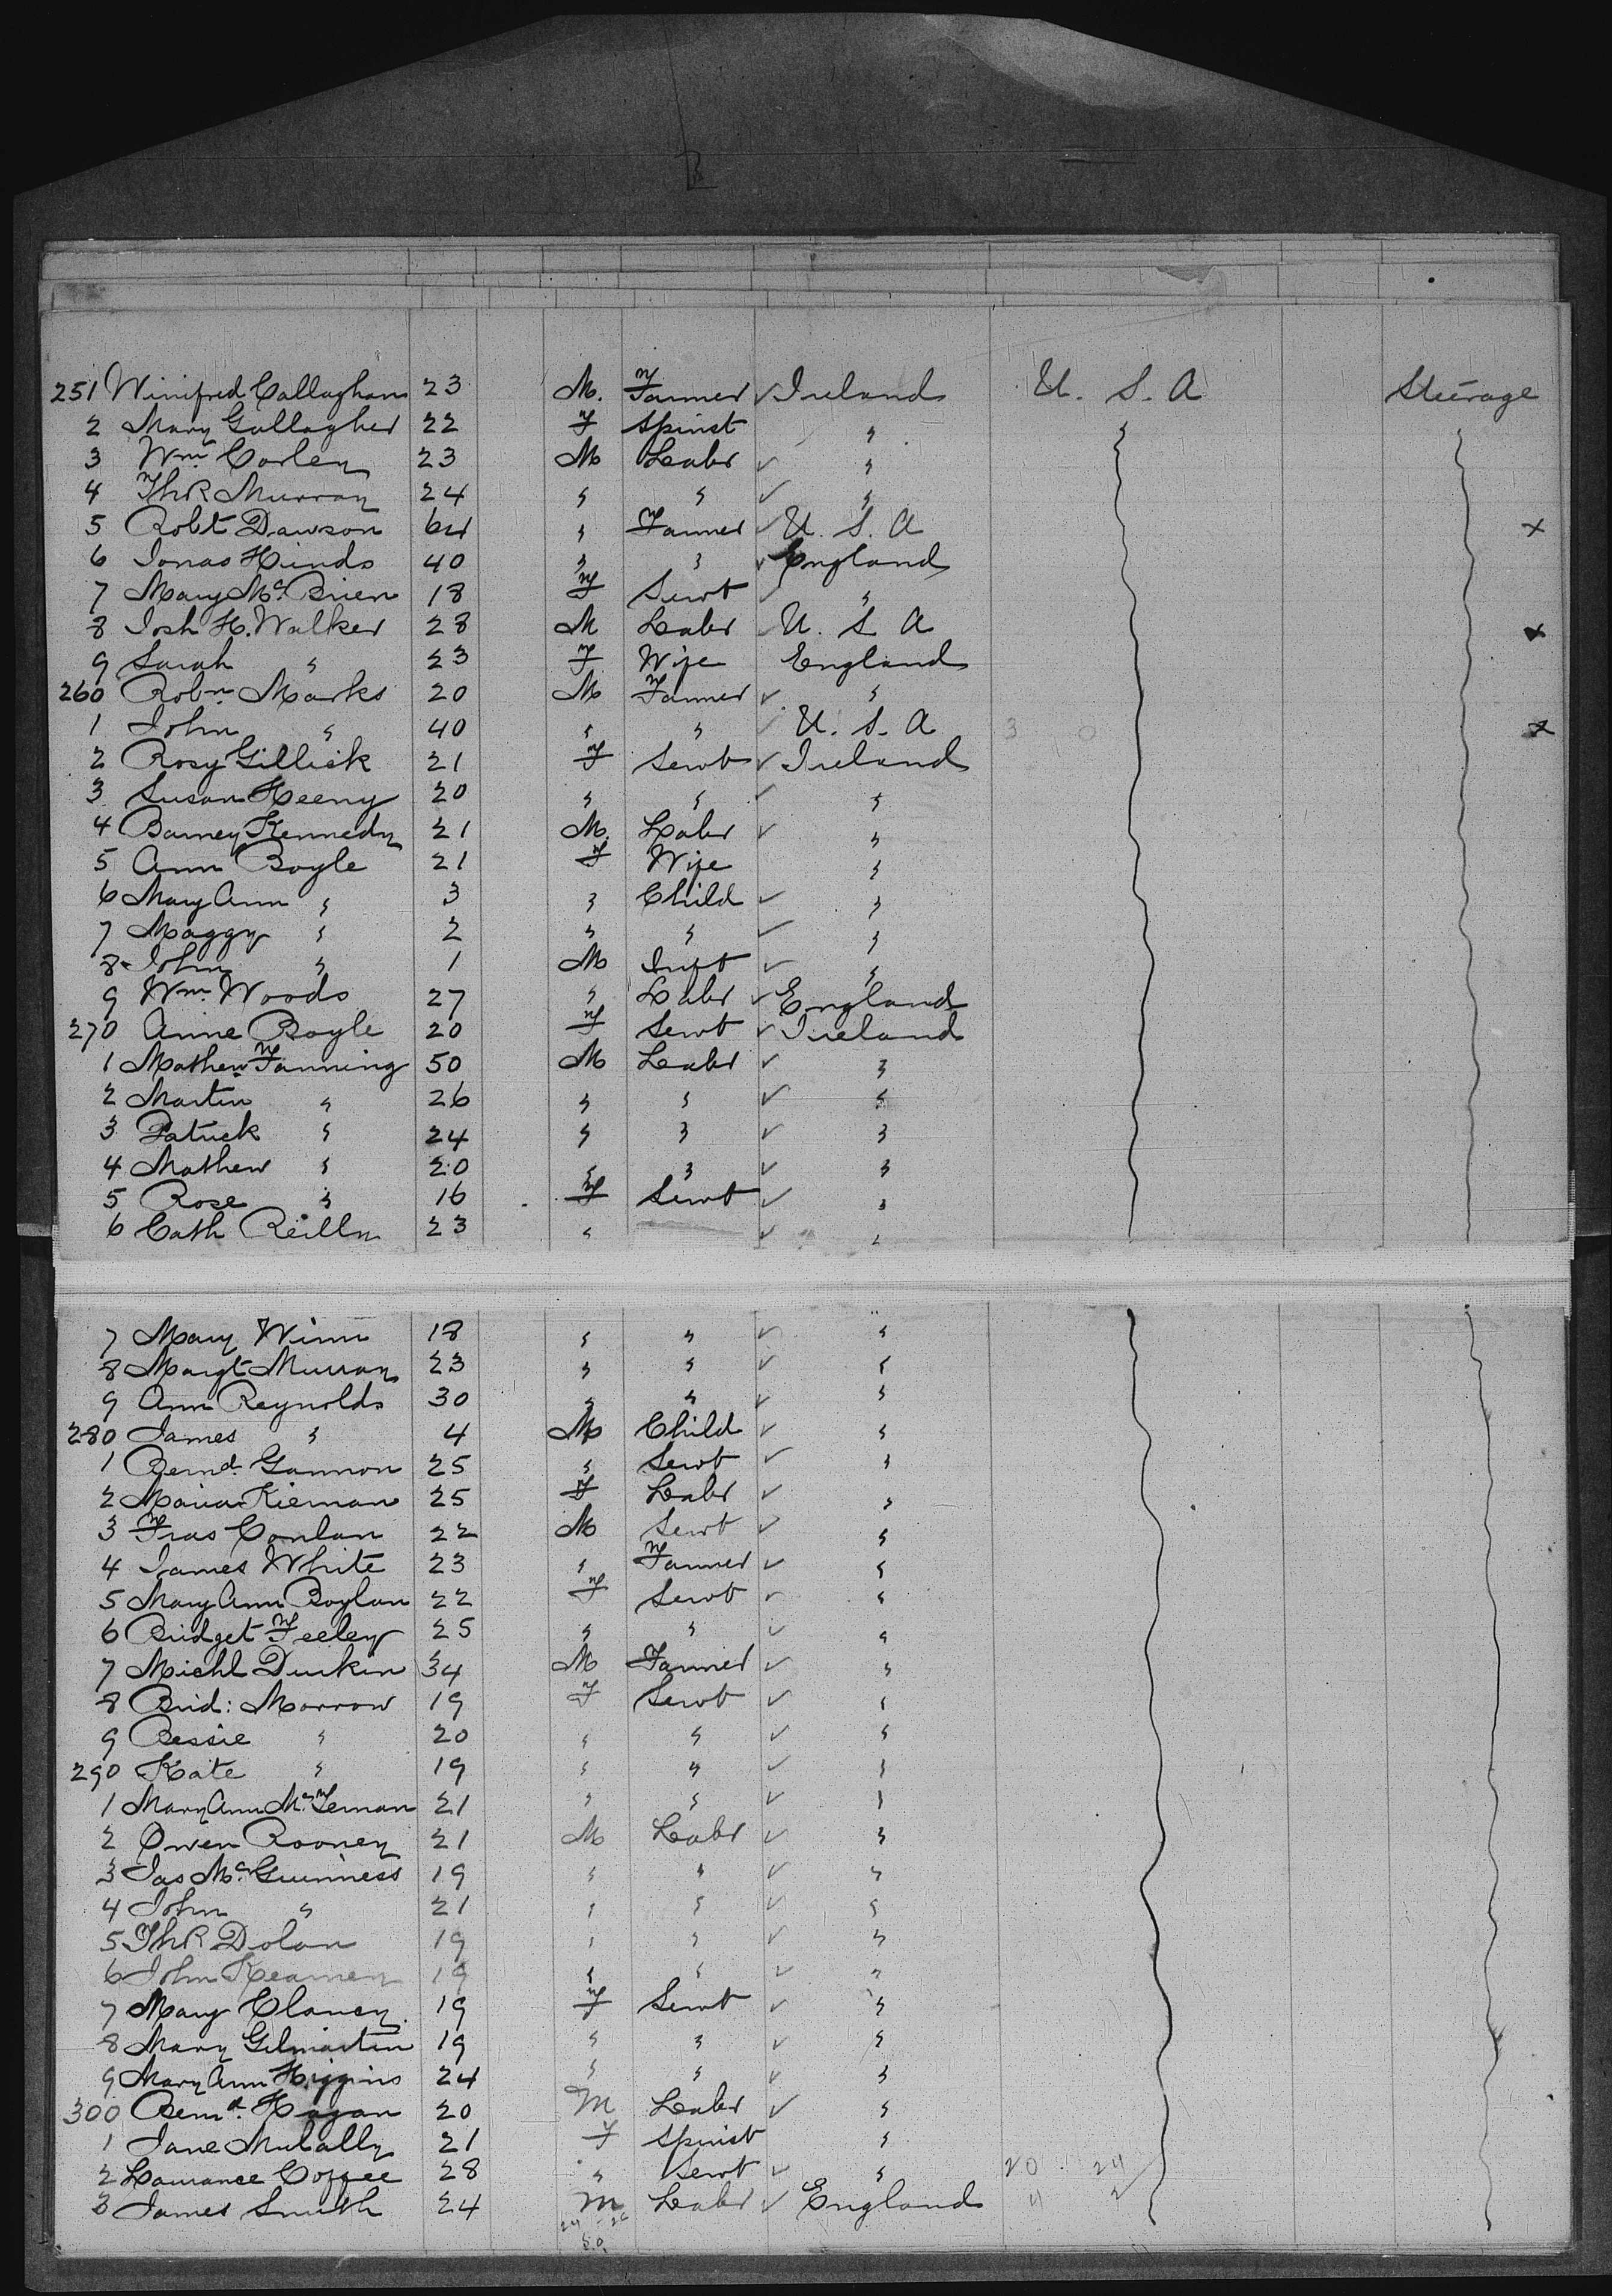 251 Winifred Callaghan 23 M. Farmer ✓ Ireland U. S. A Steerage
2 Mary Gallagher 22 F Spinst "
3 Wm Corley 23 M Labr ✓ "
4 Thos Murray 24 " " ✓ "
5 Robt Dawson 64 " Farmer ✓ U. S. A x
6 Jonas Hinds 40 " " ✓ England
7 Mary Mc Brien 18 F Servt ✓ "
8 Josh H. Walker 28 M Labr ✓ U. S. A x
9 Sarah " 23 F Wife England
260 Robn Marks 20 M Farmer ✓ "
1 John " 40 " " ✓ U. S. A 3 0 x
2 Rosy Gillick 21 F Servt ✓ Ireland
3 Susan Heeny 20 " " ✓ "
4 Barney Kennedy 21 M. Labr ✓ "
5 Ann Boyle 21 F Wife "
6 Mary Ann " 3 " Child ✓ "
7 Maggy " 2 " " ✓ "
8 John " 1 M Inft ✓ "
9 Wm Woods 27 " Labr ✓ England
270 Anne Boyle 20 F Servt ✓ Ireland
1 Mathew Fanning 50 M Labr ✓ "
2 Martin " 26 " " ✓ "
3 Patrick " 24 " " ✓ "
4 Mathew " 20 " " ✓ "
5 Rose " 16 F Servt ✓ "
6 Cath Reilly 23 " ✓ "
7 Mary Winn 18 " " ✓ "
8 Margt Murray 23 " " ✓ "
9 Ann Reynolds 30 " " ✓ "
280 James " 4 M Child ✓ "
1 Bernd. Gannon 25 " Servt ✓ "
2 Maria Kiernan 25 F Labr ✓ "
3 Fras Conlan 22 M Servt ✓ "
4 James White 23 " Farmer ✓ "
5 Mary Ann Boylan 22 F Servt ✓ "
6 Bridget Feeley 25 " " ✓ "
7 Michl Durkin 34 M Farmer ✓ "
8 Brid: Morrow 19 F Servt ✓ "
9 Bessie " 20 " " ✓ "
290 Kate " 19 " " ✓ "
1 Mary Ann Mc Ternan 21 " " ✓ "
2 Owen Rooney 21 M Labr ✓ "
3 Jas Mc Guinness 19 " " ✓ "
4 John " 21 " " ✓ "
5 Thos Dolan 19 " " ✓ "
6 John Kearney 19 " " ✓ "
7 Mary Clancy 19 F Servt ✓ "
8 Mary Gilmartin 19 " " ✓ "
9 Mary Ann Higgins 24 " " ✓ "
300 Bernd. Hagan 20 M Labr ✓ "
1 Jane Mulally 21 F Spinst "
2 Laurance Coffee 28 " Servt ✓ " 20 24
3 James Smith 24 M Labr ✓ England